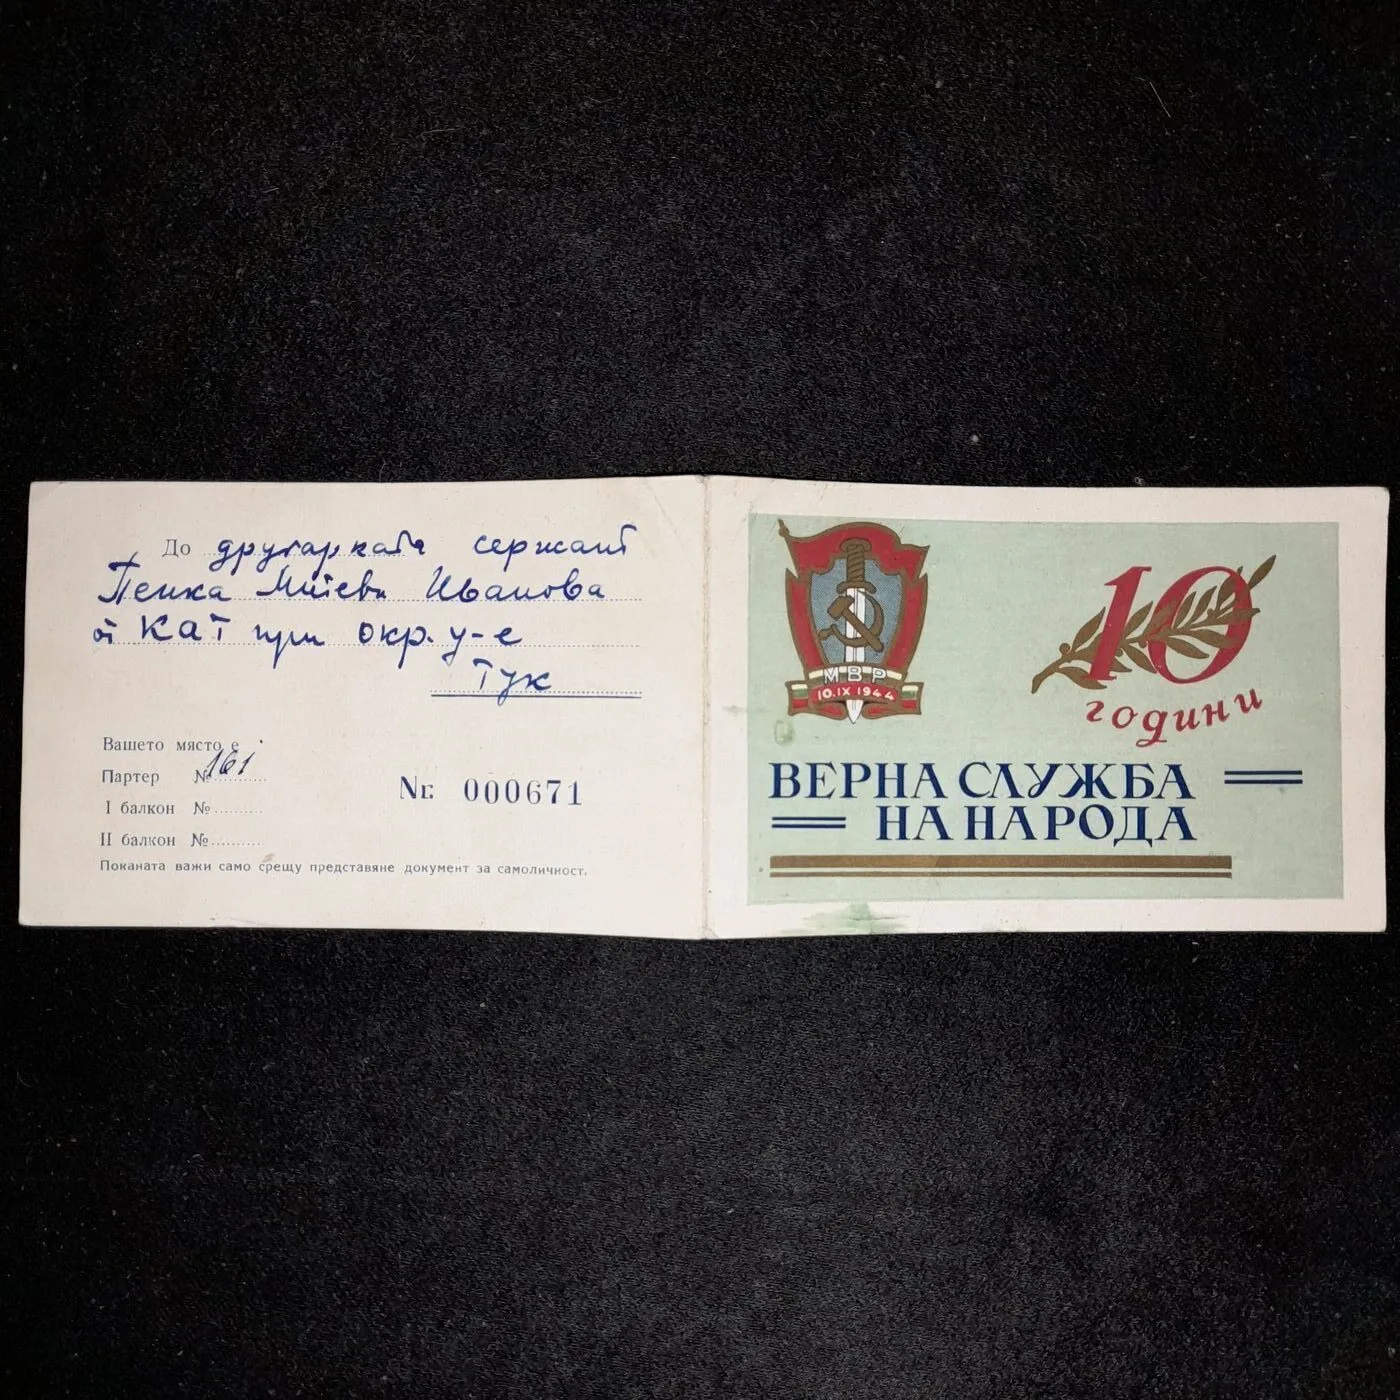 До другарката сержант
Пенка Митева Иванова
от КАТ при окр. у-е
Тук
Вашето място е
Партер № 161
I балкон №
II балкон №
Nr. 000671
Поканата важи само срещу представяне документ за самоличност.
МВР
10.IX 1944
10
години
ВЕРНА СЛУЖБА
НА НАРОДА